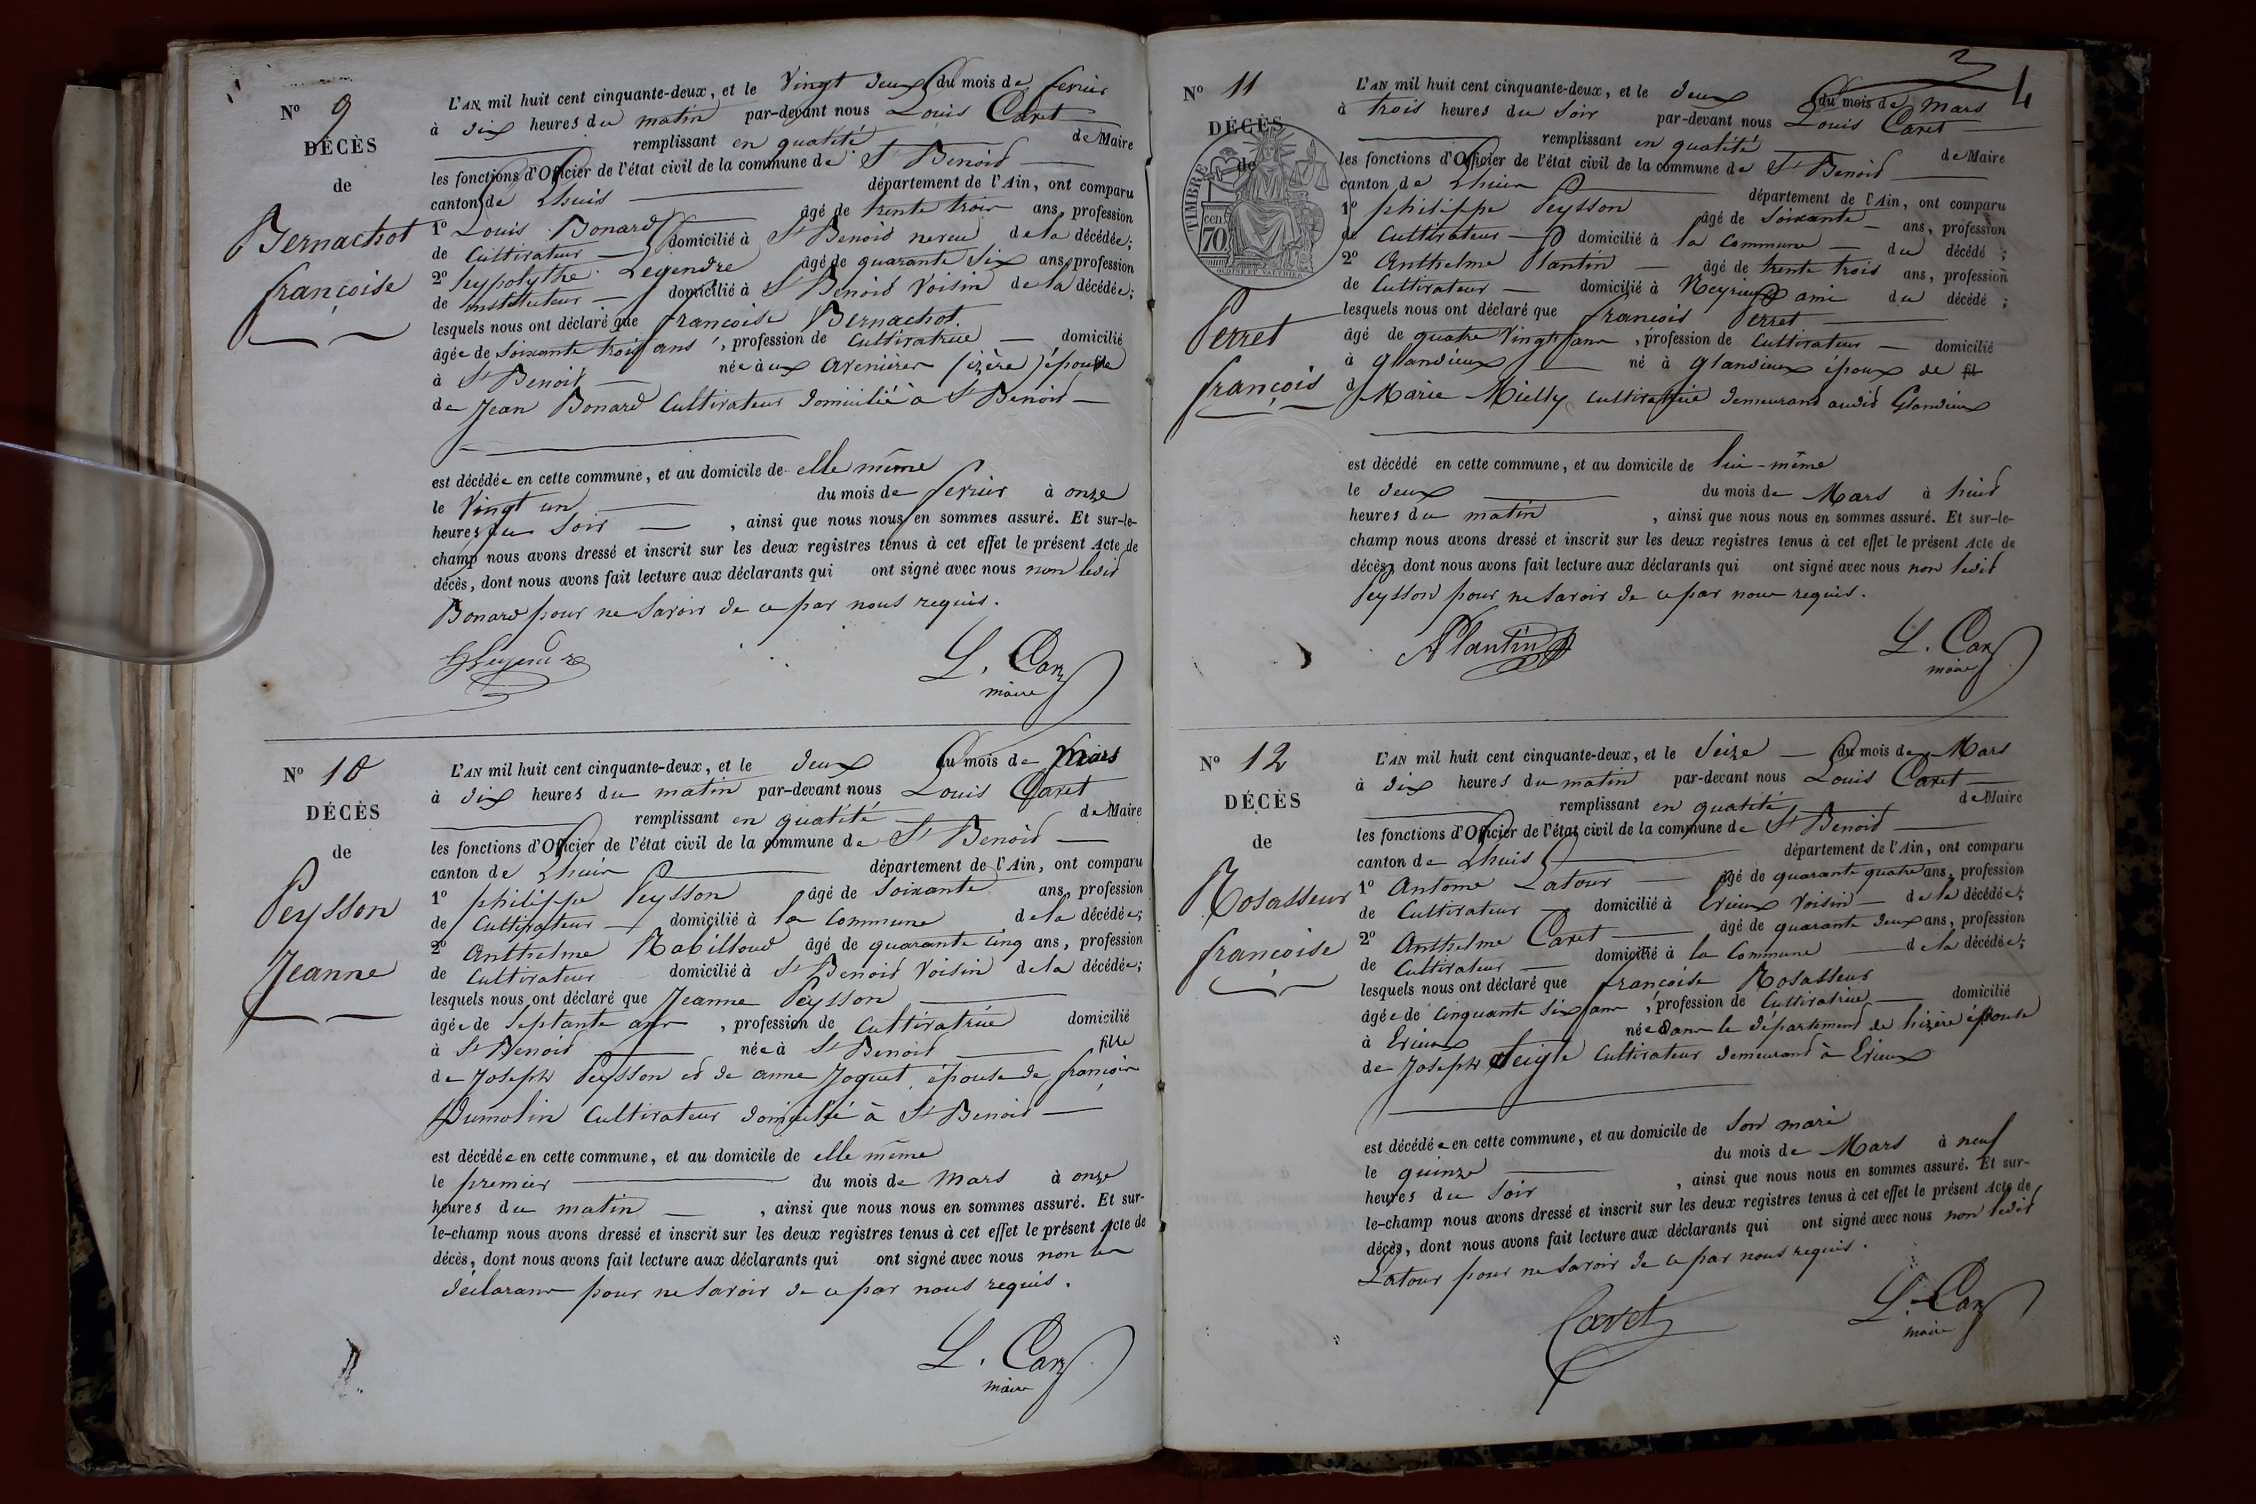 N° 9
DÉCÈS
de
Bernachot
françoise
L'AN mil huit cent cinquante-deux, et le Vingt deux du mois de fevrier
à dix heures du matin par-devant nous Louis Caret
remplissant en qualité de Maire
les fonctions d'Officier de l'état civil de la commune de St Benoid
canton de Lhuis département de l'Ain, ont comparu
1° Louis Bonard âgé de trente trois ans, profession
de Cultivateur domicilié à St Benoid neveu de la décédée;
2° hyppolythe Legendre âgé de quarante six ans, profession
de instituteur domicilié à St Benoid Voisin de la décédée;
lesquels nous ont déclaré que françoise Bernachot
âgée de soixante trois ans, profession de Cultivatrice domicilié
à St Benoit née aux Avenières (izère) épouse
de Jean Bonard Cultivateur domicilié à St Benoid
est décédée en cette commune, et au domicile de elle même
le Vingt un du mois de fevrier à onze
heures du Soir, ainsi que nous nous en sommes assuré. Et sur-le-
champ nous avons dressé et inscrit sur les deux registres tenus à cet effet le présent Acte de
décès, dont nous avons fait lecture aux déclarants qui ont signé avec nous non ledit
Bonard pour ne Savoir de ce par nous requis.
HLegendre L. Caret
maire
N° 10
DÉCÈS
de
Peysson
Jeanne
L'AN mil huit cent cinquante-deux, et le deux du mois de Mars
à dix heures du matin par-devant nous Louis Caret
remplissant en qualité de Maire
les fonctions d'Officier de l'état civil de la commune de St Benoid
canton de Lhuis département de l'Ain, ont comparu
1° philippe Peysson âgé de Soixante ans, profession
de Cultivateur domicilié à la Commune de la décédée;
2° Anthelme Rabilloud âgé de quarante cinq ans, profession
de Cultivateur domicilié à St Benoid Voisin de la décédée;
lesquels nous ont déclaré que Jeanne Peysson
âgée de Septante ans, profession de Cultivatrice domicilié
à St Benoid née à St Benoid fille
de Joseph Peysson et de anne Joguet, épouse de françois
Dumolin Cultivateur domicilié à St Benoid
est décédée en cette commune, et au domicile de elle même
le premier du mois de Mars à onze
heures du matin, ainsi que nous nous en sommes assuré. Et sur-
le-champ nous avons dressé et inscrit sur les deux registres tenus à cet effet le présent Acte de
décès, dont nous avons fait lecture aux déclarants qui ont signé avec nous non les
déclarans pour ne Savoir de ce par nous requis.
L. Caret
maire
3 4
N° 11
DÉCÈS
de
TIMBRE
70 cen
Perret
françois
L'AN mil huit cent cinquante-deux, et le deux du mois de Mars
à trois heures du Soir par-devant nous Louis Caret
remplissant en qualité de Maire
les fonctions d'Officier de l'état civil de la commune de St Benoid
canton de Lhuis département de l'Ain, ont comparu
1° philippe Peysson âgé de Soixante ans, profession
de Cultivateur domicilié à la Commune du décédé;
2° Anthelme Plantin âgé de trente trois ans, profession
de Cultivateur domicilié à Neyrieux ami du décédé;
lesquels nous ont déclaré que françois Perret
âgé de quatre Vingts ans, profession de Cultivateur domicilié
à Glandieux né à Glandieux époux de
Marie Mielly Cultivatrice demeurand audit Glandieux
est décédé en cette commune, et au domicile de lui-même
le deux du mois de Mars à huid
heures du matin, ainsi que nous nous en sommes assuré. Et sur-le-
champ nous avons dressé et inscrit sur les deux registres tenus à cet effet le présent Acte de
décès, dont nous avons fait lecture aux déclarants qui ont signé avec nous non ledit
Peysson pour ne Savoir de ce par nous requis.
APlantin L. Caret
maire
N° 12
DÉCÈS
de
Rosasseur
françoise
L'AN mil huit cent cinquante-deux, et le Seize du mois de Mars
à dix heures du matin par-devant nous Louis Caret
remplissant en qualité de Maire
les fonctions d'Officier de l'état civil de la commune de St Benoid
canton de Lhuis département de l'Ain, ont comparu
1° Antoine Latour âgé de quarante quatre ans, profession
de Cultivateur domicilié à Evieux Voisin de la décédée;
2° Anthelme Caret âgé de quarante deux ans, profession
de Cultivateur domicilié à la Commune de la décédée;
lesquels nous ont déclaré que françoise Rosasseur
âgée de Cinquante six ans, profession de Cultivatrice domicilié
à Evieux née dans le département de lizère épouse
de Joseph Seigle Cultivateur demeurand à Evieux
est décédée en cette commune, et au domicile de Son mari
le quinze du mois de Mars à neuf
heures du Soir, ainsi que nous nous en sommes assuré. Et sur-
le-champ nous avons dressé et inscrit sur les deux registres tenus à cet effet le présent Acte de
décès, dont nous avons fait lecture aux déclarants qui ont signé avec nous non ledit
Latour pour ne Savoir de ce par nous requis.
Caret L. Caret
maire